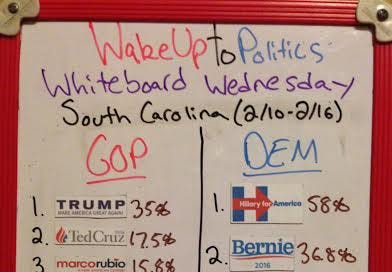 WakeUp to Politics
Whiteboard Wednesday
South Carolina (2/10-2/16)
GOP
1. TRUMP 35%
MAKE AMERICA GREAT AGAIN!
2. TedCruz 17.5%
3. marcorubio 15.8%
DEM
1. Hillary for America 58%
2. Bernie 36.8%
2016